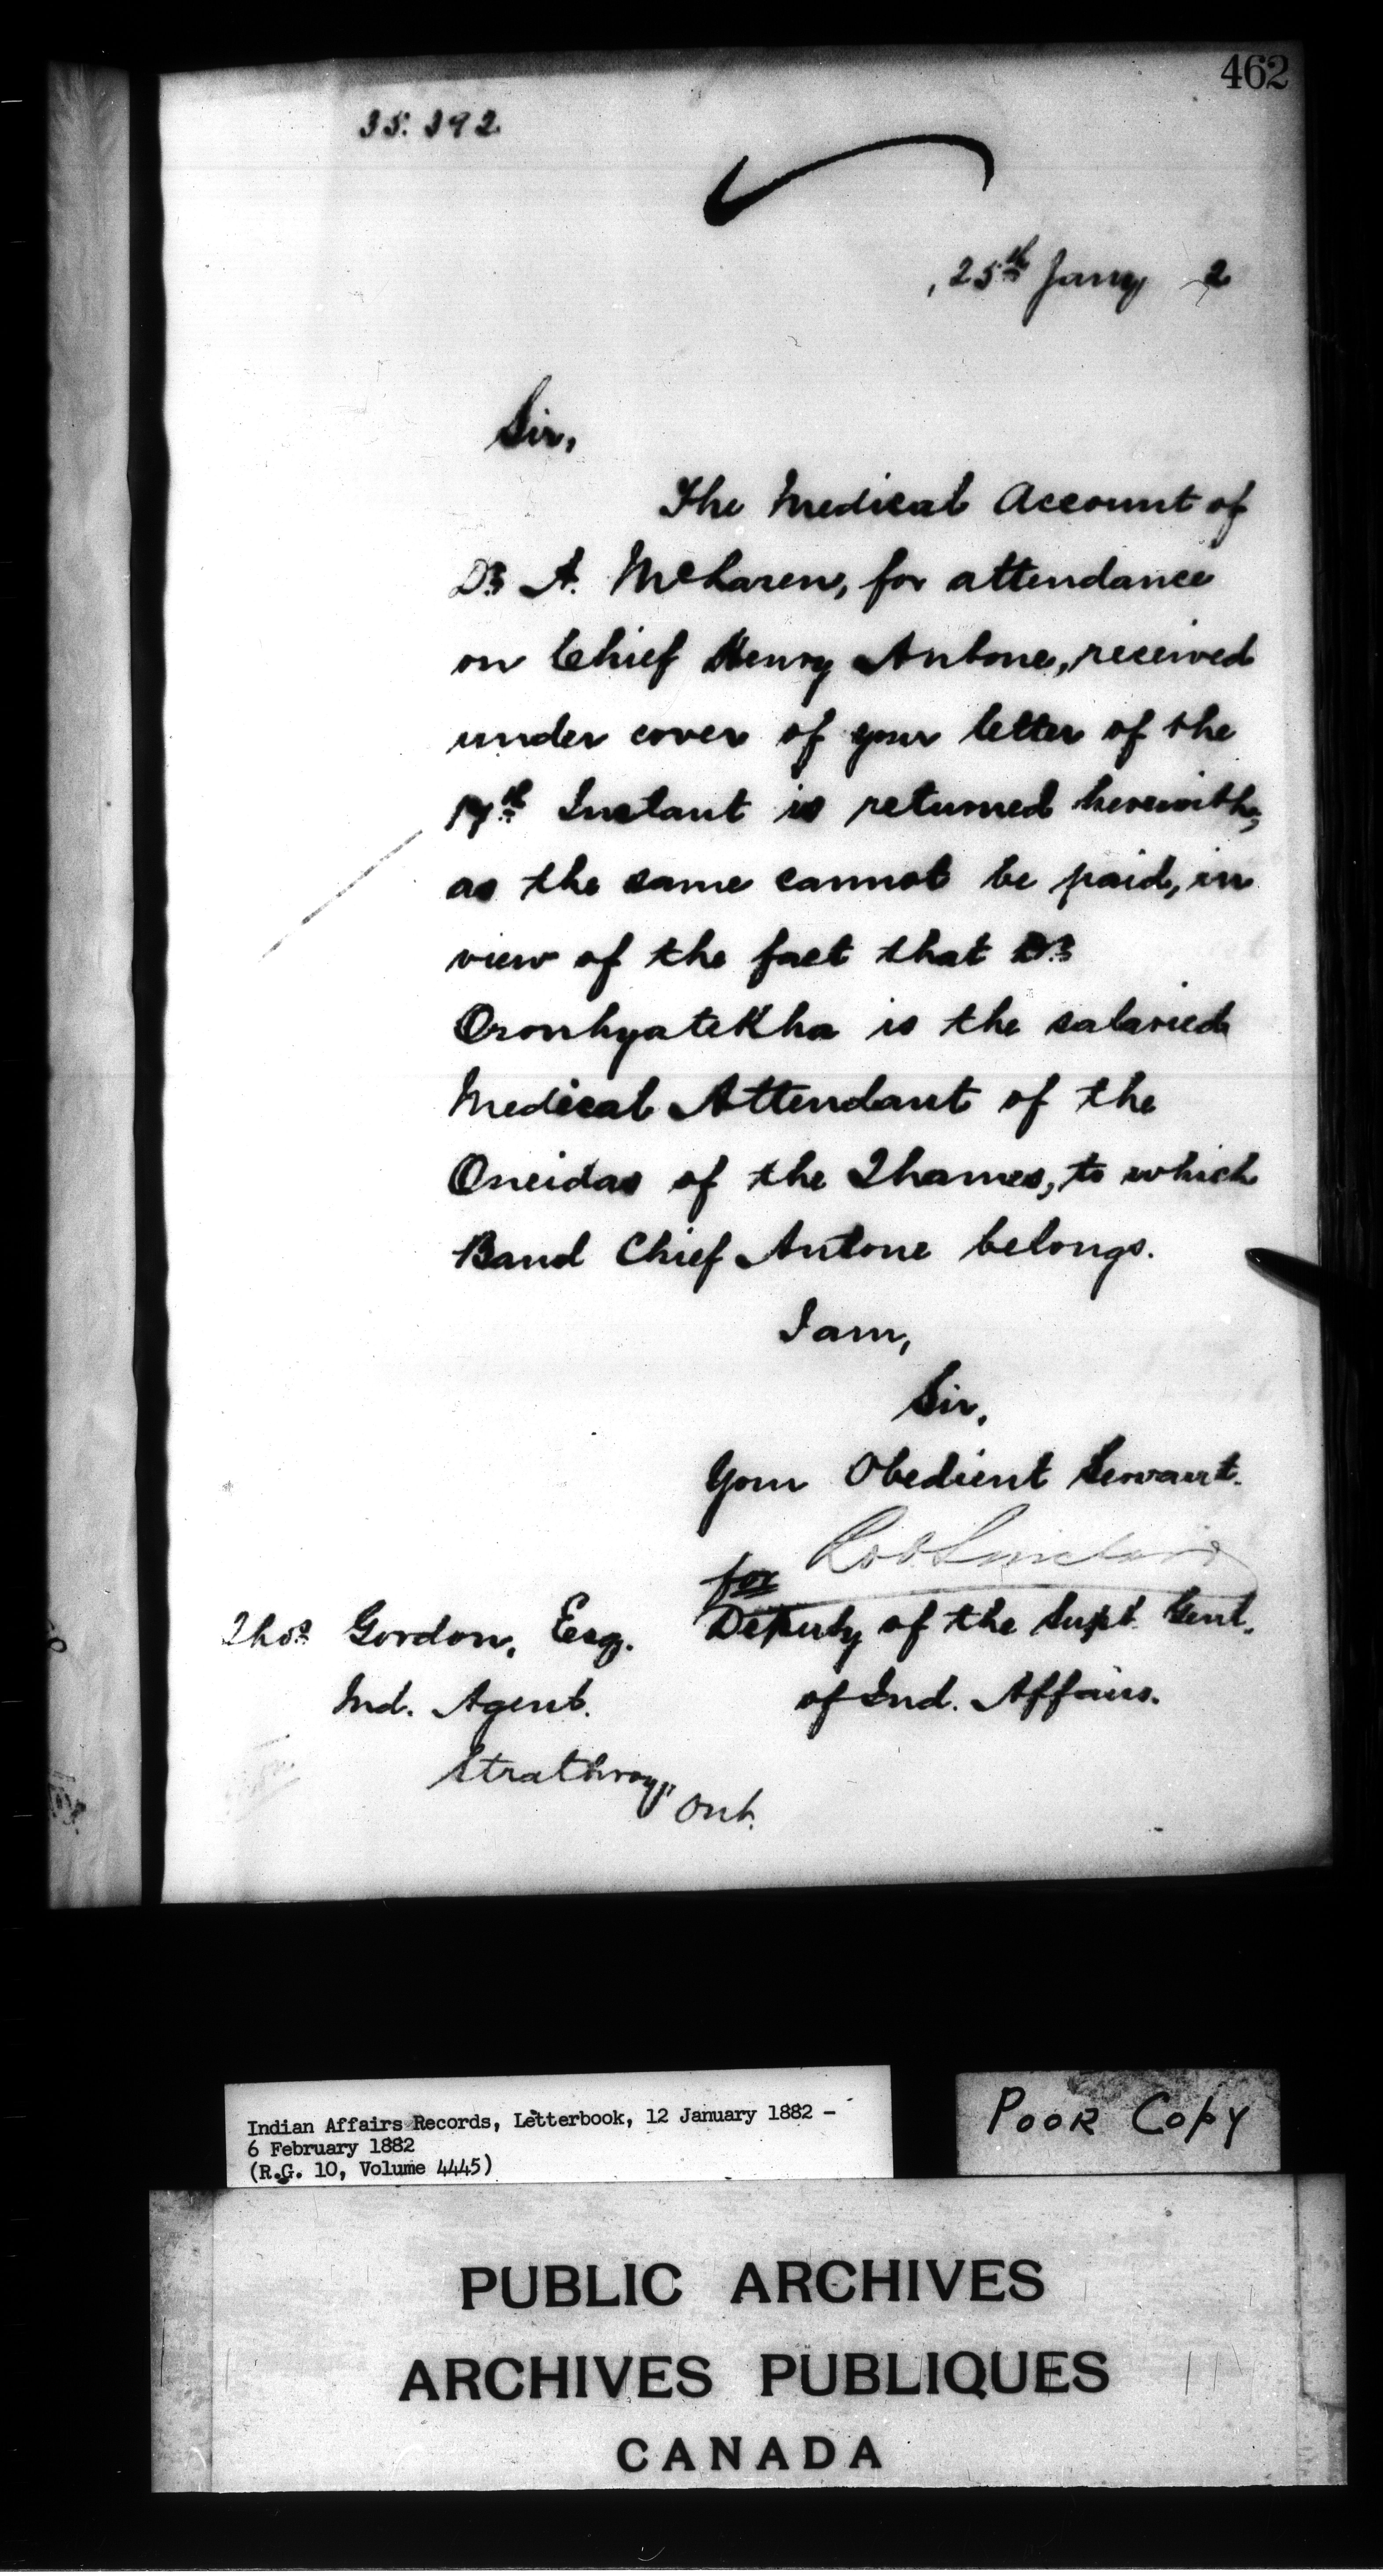 462
35.392
25th Jany 2
Sir,
The Medical Account of
Dr. A. McLaren, for attendance
on Chief Henry Antone, received
under cover of your letter of the
Instant is returned herewith,
as the same cannot be paid, in
view of the fact that Dr.
Oronhyatekha is the salaried
Medical Attendant of the
Oneidas of the Thames, to which
Band Chief Antone belongs.
I am,
Sir,
Your Obedient Servant.
Rob Sinclair
for
Deputy of the Supt. Genl.
of Ind. Affairs.
Thos. Gordon, Esq.
Ind. Agent.
Strathroy,
Ont.
Indian Affairs Records, Letterbook, 12 January 1882 -
6 February 1882
(R.G. 10, Volume 4445)
POOR COPY
PUBLIC ARCHIVES
ARCHIVES PUBLIQUES
CANADA